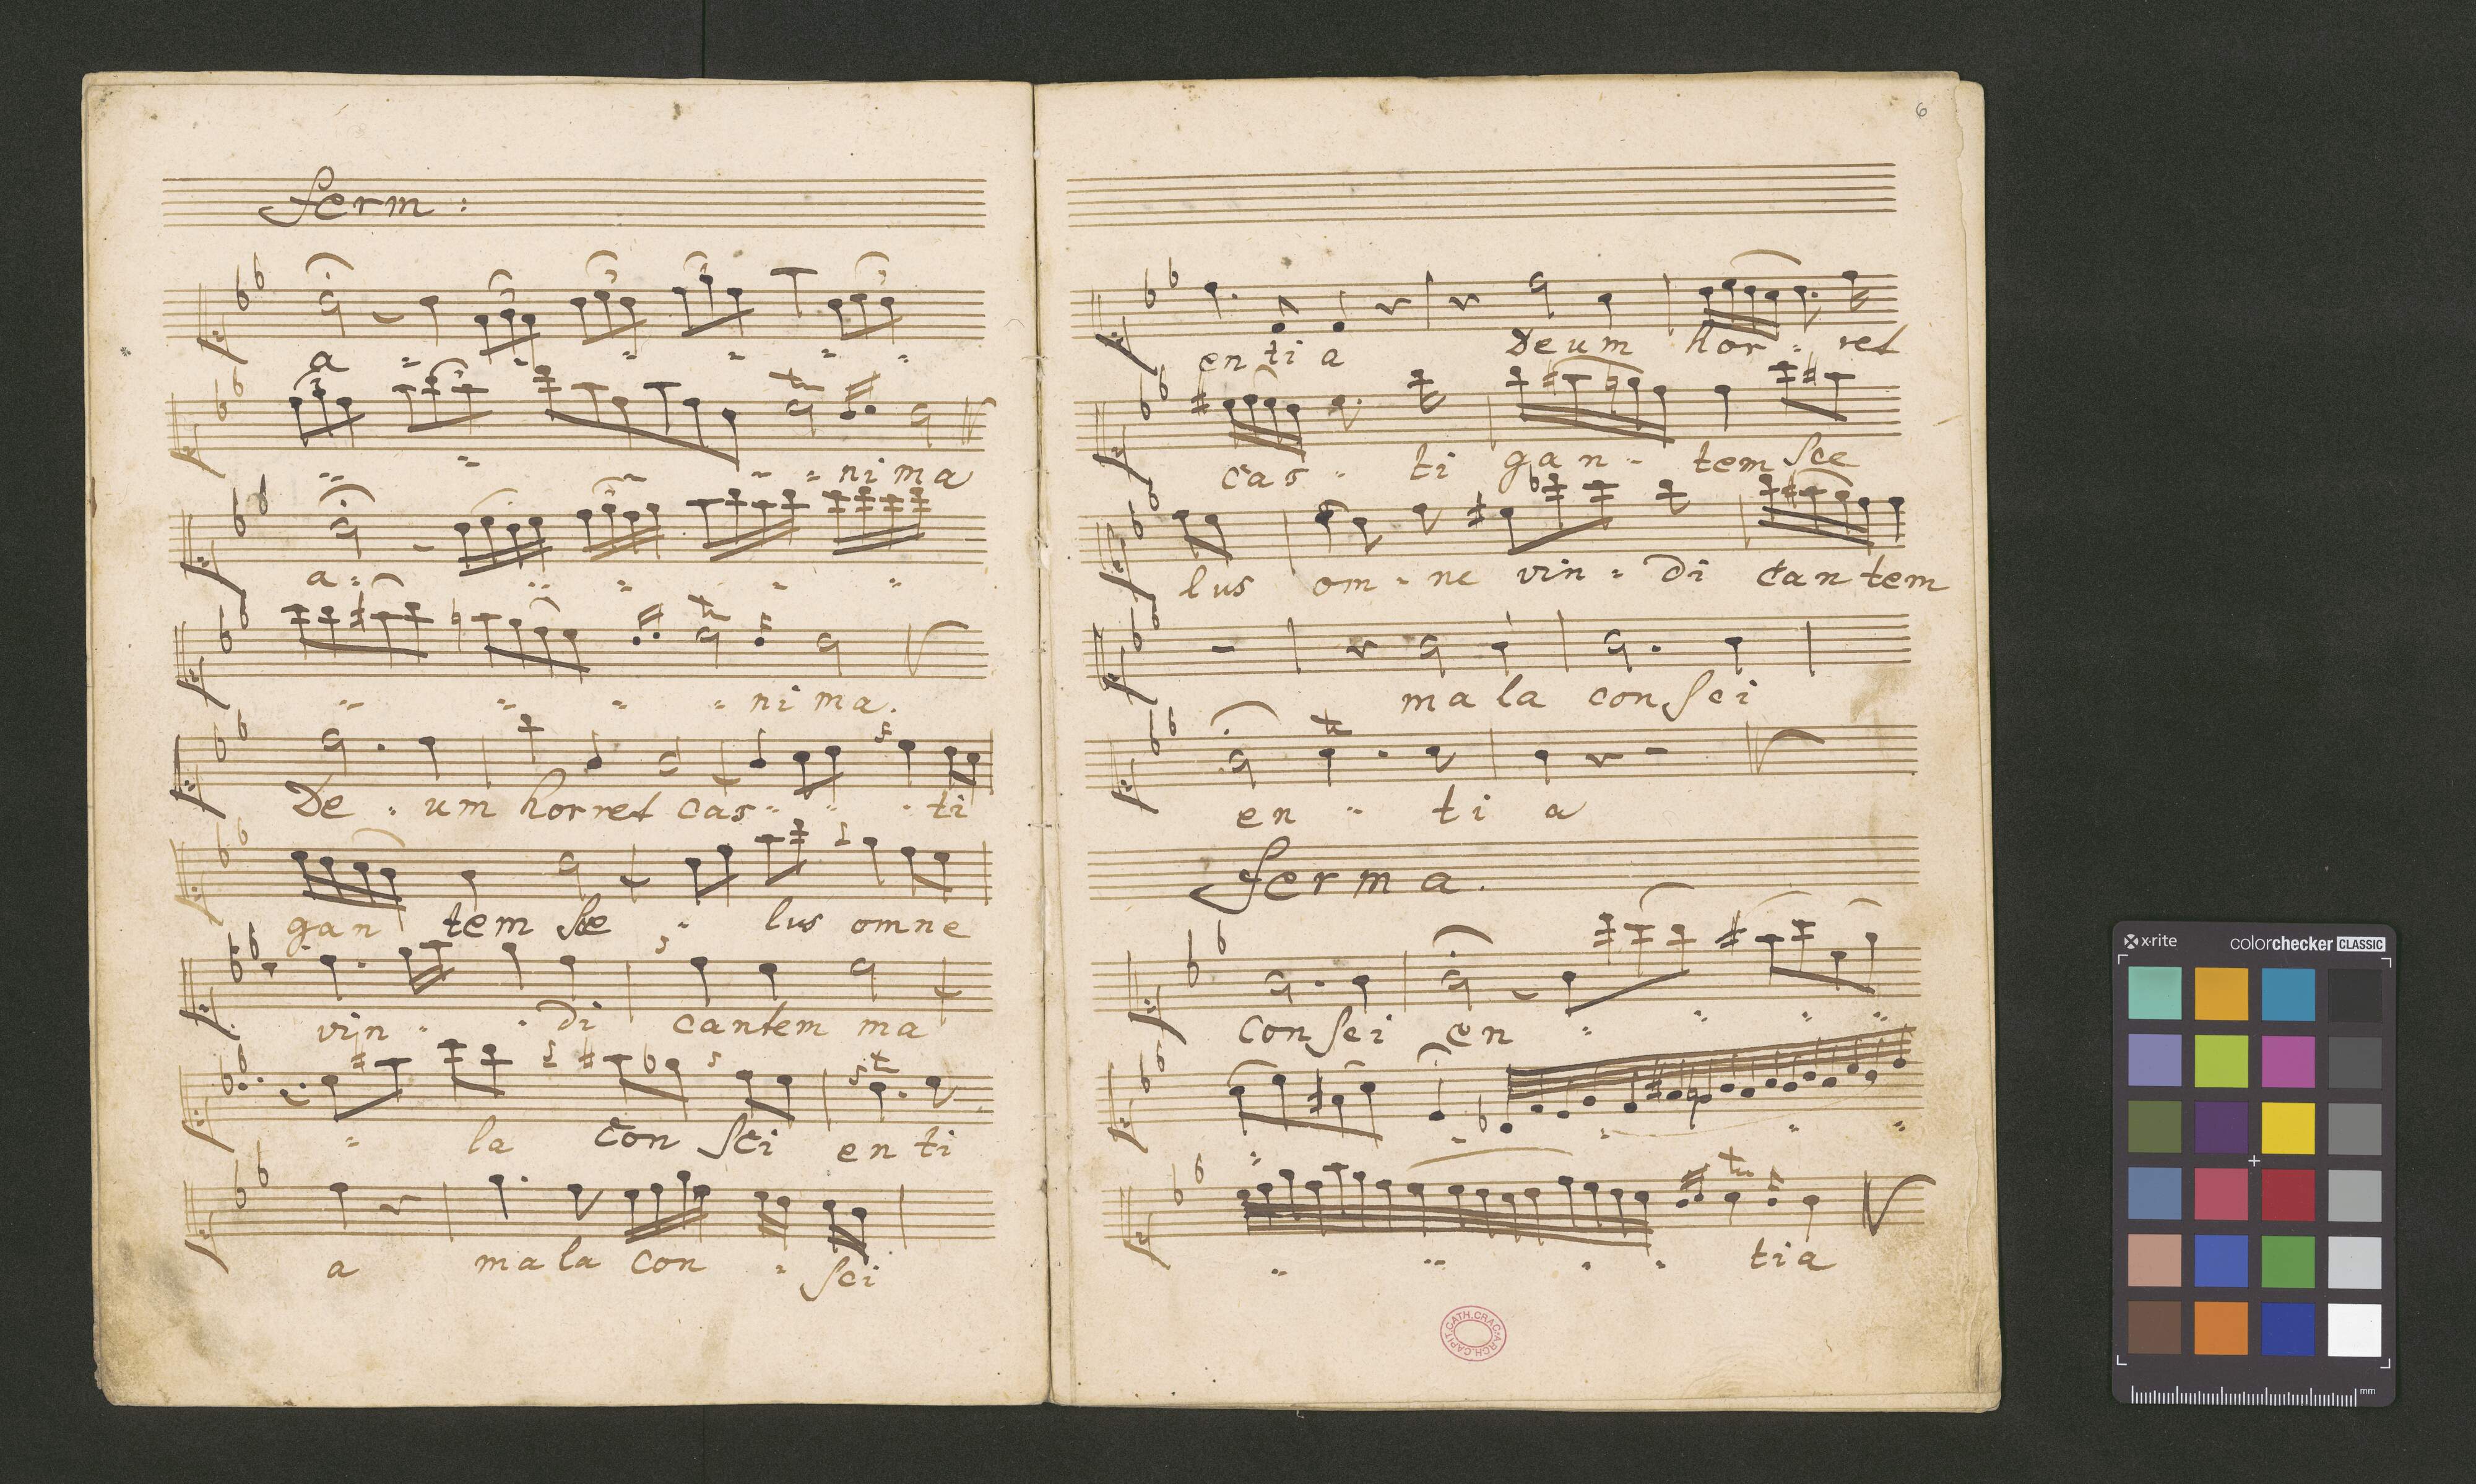 ferm:
a - - - - - -
- - - - nima
a - - - - -
- - - - nima.
De - um horret cas - - - ti
gan tem sce - lus omne
vin - - di cantem ma
- la con sci en ti
a ma la con - sci
6
en ti a Deum hor - ret
cas - ti gan - tem sce
lus om - ne vin - di can tem
ma la con sci
en - ti a
ferma.
con sci en - - - -
- - - - -
- - - - tia
ARCH.CAPIT.CATH.CRAC.
x·rite colorchecker CLASSIC
mm